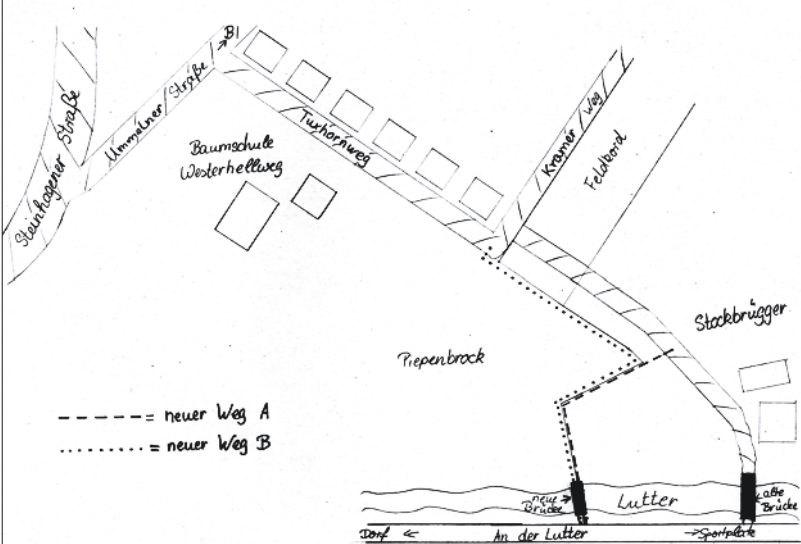 BI
Steinhagener Straße
Ummelner Straße
Baumschule
Westerhellweg
Tuxhornweg
Kramer Weg
Feldbord
Stockbrügger
Piepenbrock
= neuer Weg A
= neuer Weg B
neue
Brücke
Lutter
alte
Brücke
Dorf
An der Lutter
Sportplatz